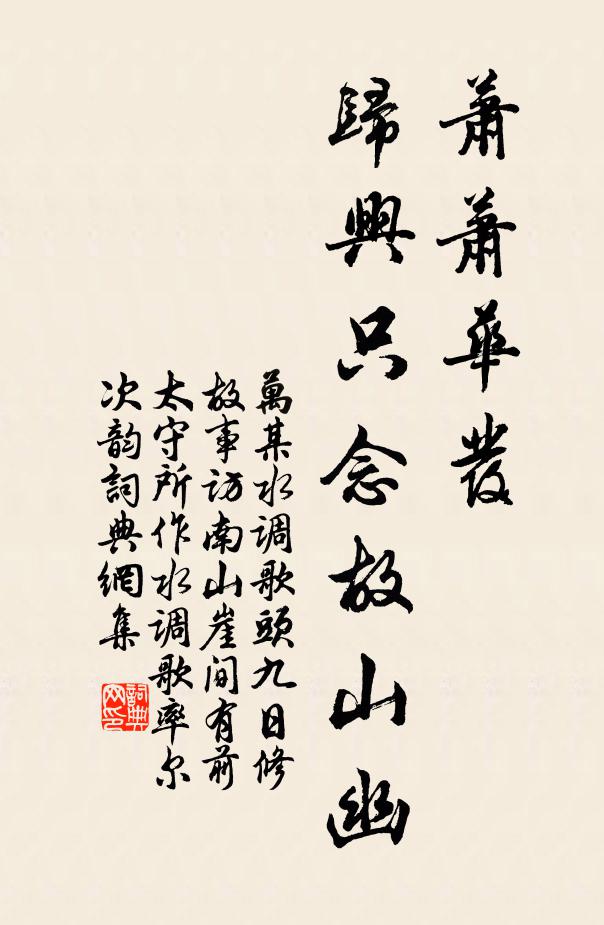 蕭蕭華髮
歸興只念故山幽
萬某水调歌頭九日修
故事访南山崖间有前
太守所作水调歌率尔
次韵詞典網集
詞典网印